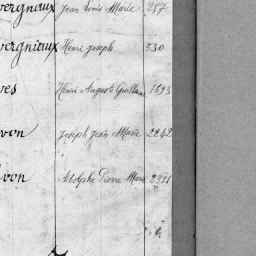 vergnaux Jean Louis Marie 257
vergniaux Henri Joseph 530
ves Henri Auguste 1593
von Joseph Jean Marie 2242
von Adolphe Pierre Marie 2321